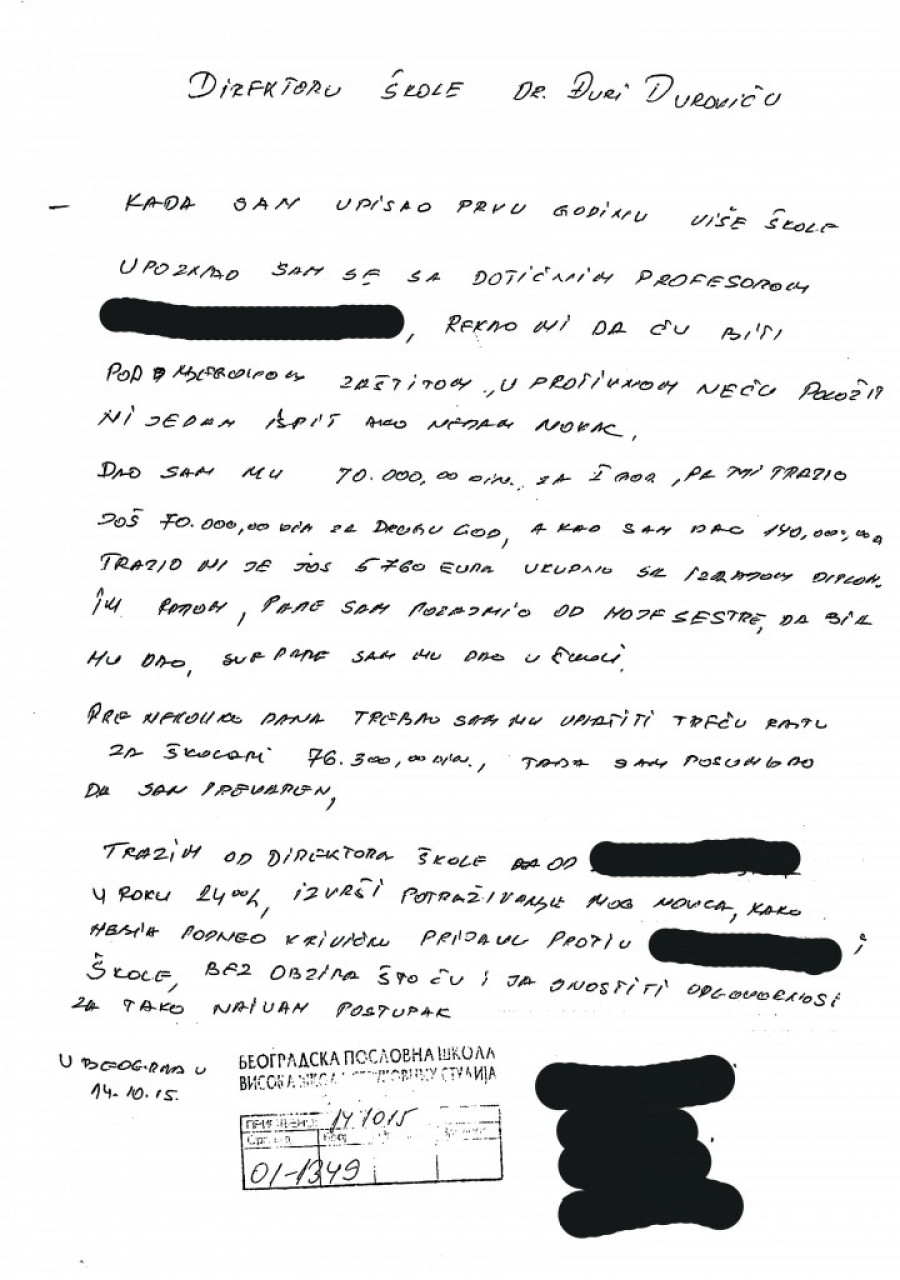 DIREKTORU ŠKOLE DR. ĐURI ĐUROVIĆU
– KADA SAM UPISAO PRVU GODINU VIŠE ŠKOLE
UPOZNAO SAM SE SA DOTIČNIM PROFESOROM
, REKAO MI DA ĆU BITI
POD ZAŠTITOM, U PROTIVNOM NEĆU POLOŽIT
NI JEDAN ISPIT AKO NEDAM NOVAC.
DAO SAM MU 70.000,00 DIN. ZA I GOD, PA MI TRAZIO
JOŠ 70.000,00 DIN ZA DRUGU GOD, A KAO SAM DAO 140.000,00
TRAZIO MI JE JOS 5760 EURA UKUPNO SA IZRADOM DIPLOM.
IM RADOM, PARE SAM POZAJMIO OD MOJE SESTRE, DA BIH
MU DAO, SVE PARE SAM MU DAO U ŠKOLI.
PRE NEKOLIKO DANA TREBAO SAM MU UPLATITI TREĆU RATU
ZA ŠKOLARI 76.300,00 DIN., TADA SAM POSUMLJAO
DA SAM PREVAREN,
TRAZIM OD DIREKTORA ŠKOLE OD
U ROKU 24 00h, IZVRŠI POTRAŽIVANJE MOG NOVCA, KAKO
NEBIH PODNEO KRIVIČNU PRIJAVU PROTIV I
ŠKOLE, BEZ OBZIRA ŠTO ĆU I JA SNOSTITI ODGOVORNOSI
ZA TAKO NAIVAN POSTUPAK
U BEOGRADU
14.10.15.
БЕОГРАДСКА ПОСЛОВНА ШКОЛА
ВИСОКА ШКОЛА СТРУКОВНИХ СТУДИЈА
14 10 15
01-1349